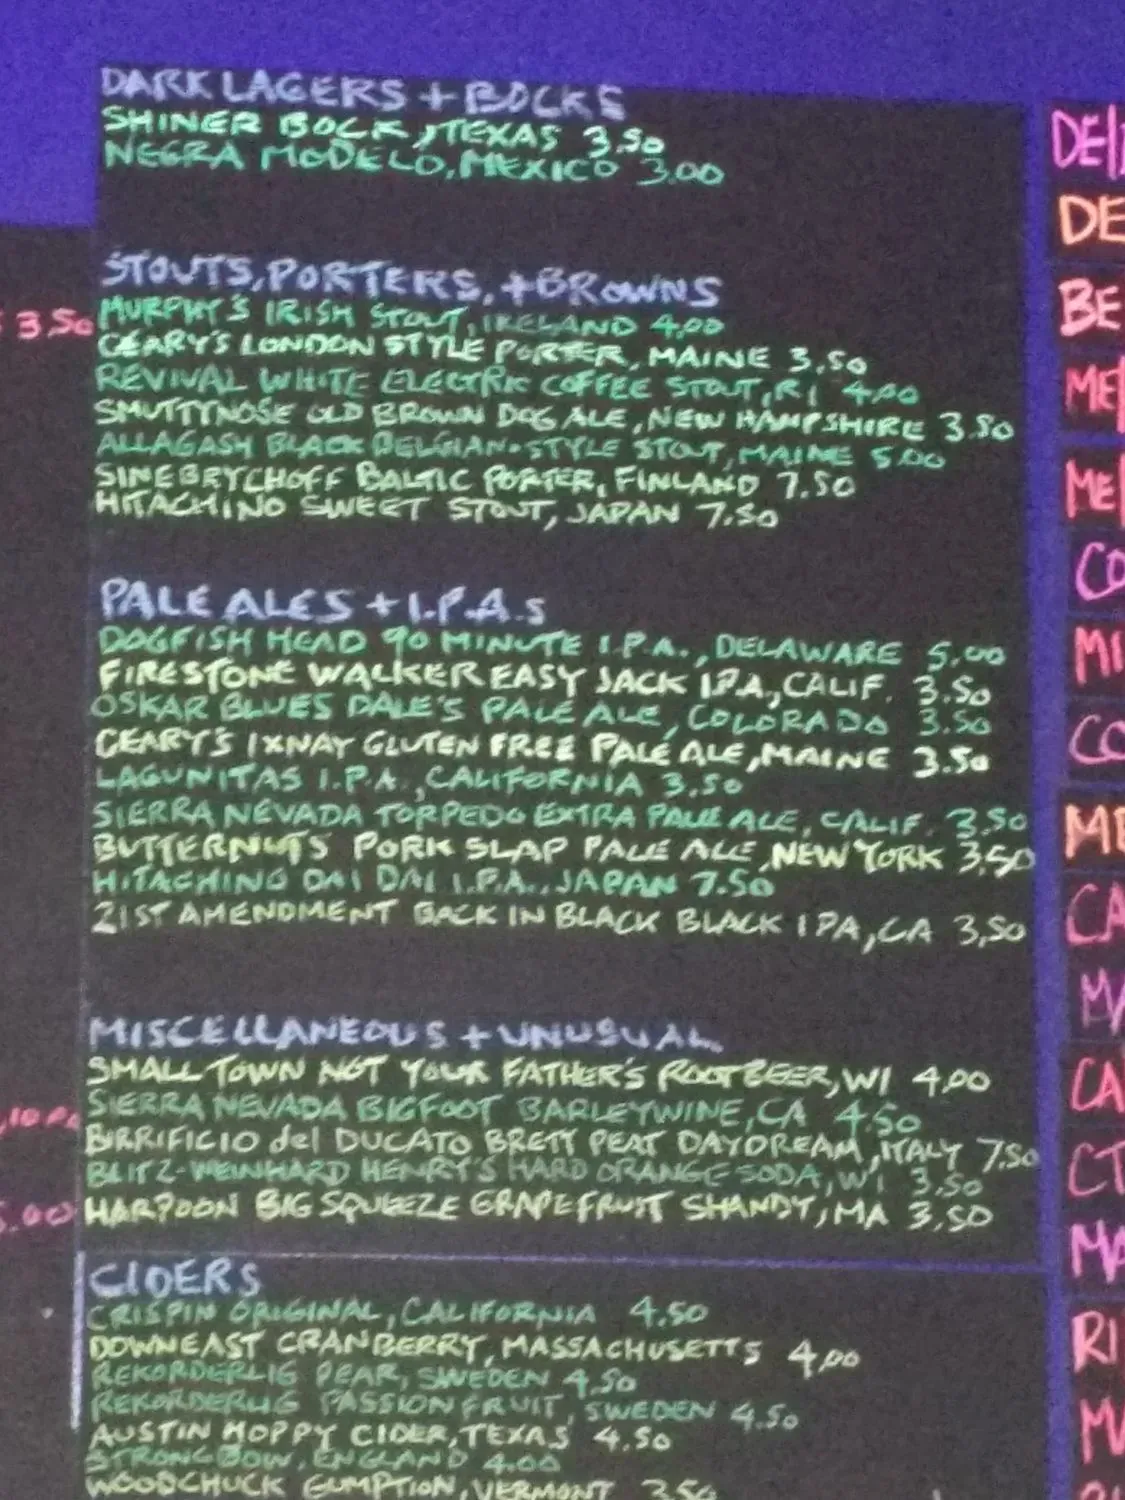 DARK LAGERS + BOCKS
SHINER BOCK, TEXAS 3.50
NEGRA MODELO, MEXICO 3.00
STOUTS, PORTERS, + BROWNS
MURPHY'S IRISH STOUT, IRELAND 4.00
GEARY'S LONDON STYLE PORTER, MAINE 3.50
REVIVAL WHITE ELECTRIC COFFEE STOUT, RI 4.00
SMUTTYNOSE OLD BROWN DOG ALE, NEW HAMPSHIRE 3.50
ALLAGASH BLACK BELGIAN-STYLE STOUT, MAINE 5.00
SINEBRYCHOFF BALTIC PORTER, FINLAND 7.50
HITACHINO SWEET STOUT, JAPAN 7.50
PALE ALES + I.P.A.S
DOGFISH HEAD 90 MINUTE I.P.A., DELAWARE 5.00
FIRESTONE WALKER EASY JACK IPA, CALIF. 3.50
OSKAR BLUES DALE'S PALE ALE, COLORADO 3.50
GEARY'S IXNAY GLUTEN FREE PALE ALE, MAINE 3.50
LAGUNITAS I.P.A., CALIFORNIA 3.50
SIERRA NEVADA TORPEDO EXTRA PALE ALE, CALIF. 3.50
BUTTERNUTS PORK SLAP PALE ALE, NEW YORK 3.50
HITACHINO DAI DAI I.P.A., JAPAN 7.50
21ST AMENDMENT BACK IN BLACK BLACK IPA, CA 3.50
MISCELLANEOUS + UNUSUAL
SMALL TOWN NOT YOUR FATHER'S ROOT BEER, WI 4.00
SIERRA NEVADA BIGFOOT BARLEYWINE, CA 4.50
BIRRIFICIO del DUCATO BRETT PEAT DAYDREAM, ITALY 7.50
BLITZ-WEINHARD HENRY'S HARD ORANGE SODA, WI 3.50
HARPOON BIG SQUEEZE GRAPEFRUIT SHANDY, MA 3.50
CIDERS
CRISPIN ORIGINAL, CALIFORNIA 4.50
DOWNEAST CRANBERRY, MASSACHUSETTS 4.00
REKORDERLIG PEAR, SWEDEN 4.50
REKORDERLIG PASSIONFRUIT, SWEDEN 4.50
AUSTIN HOPPY CIDER, TEXAS 4.50
STRONGBOW, ENGLAND 4.00
WOODCHUCK GUMPTION, VERMONT 3.50
3.50